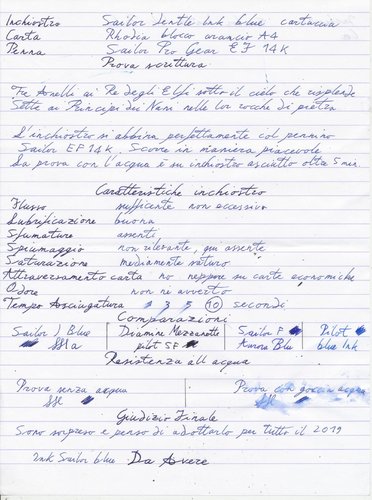 Inchiostro Sailor Jentle Ink blue cartuccia
Carta Rhodia blocco arancio A4
Penna Sailor Pro Gear EF 14K
Prova scrittura
Tre Anelli ai Re degli Elfi sotto il cielo che risplende
Sette ai Principi dei Nani nelle lor rocche di pietra
L'inchiostro si abbina perfettamente col pennino
Sailor EF 14K. Scorre in maniera piacevole
La prova con l'acqua è su inchiostro asciutto oltre 5 min
Caratteristiche inchiostro
Flusso sufficente non eccessivo
Lubrificazione buona
Sfumature assenti
Spiumaggio non rilevante, quasi assente
Saturazione mediamente saturo
Attraversamento carta no neppure su carte economiche
Odore non ne avverto
Tempo Asciugatura 1 3 5 10 secondi
Comparazioni
Sailor J Blue Diamine Mezzanotte Sailor F Pilot
pilot SF Aurora Blu blue Ink
Resistenza all acqua
Prova senza acqua Prova con goccia acqua
Giudizio Finale
Sono sorpreso e penso di adottarlo per tutto il 2019
Ink Sailor blue Da Avere